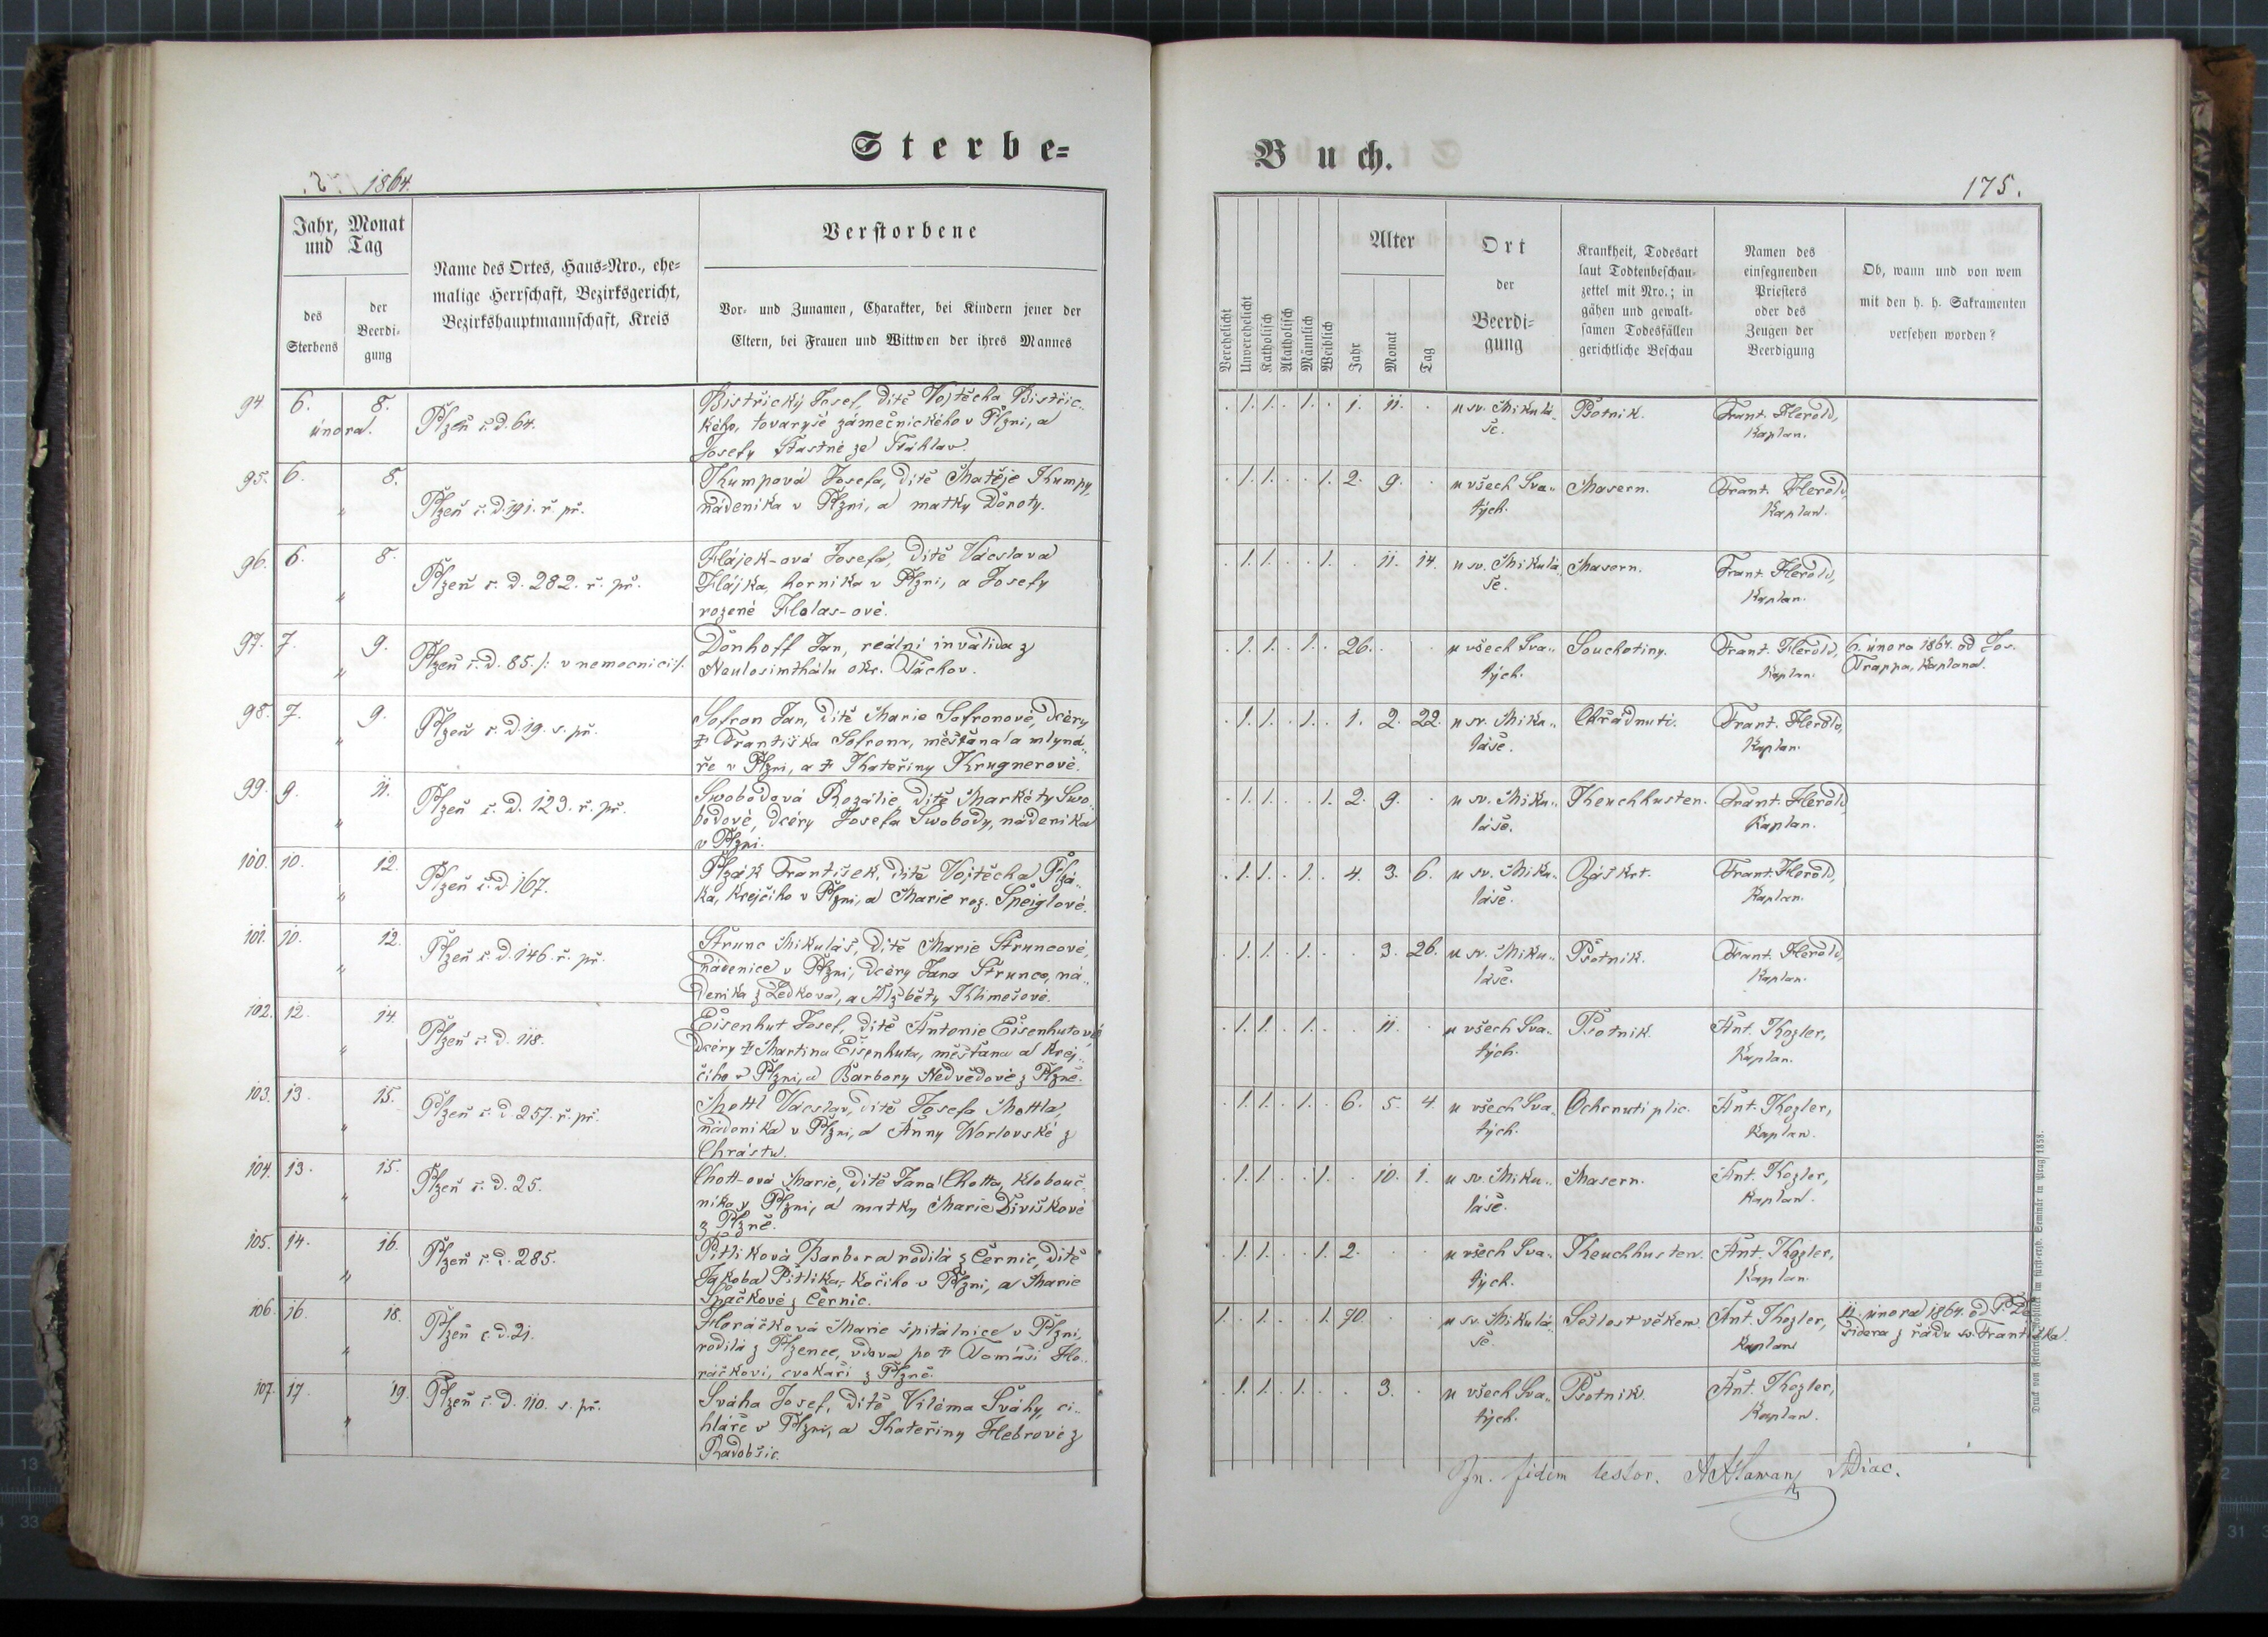 Sterbe=
1864.
Jahr, Monat
und Tag
des
Sterbens
der
Beerdi-
gung
Name des Ortes, Haus=Nro., ehe=
malige Herrschaft, Bezirksgericht,
Bezirkshauptmannschaft, Kreis
Verstorbene
Vor- und Zunamen, Charakter, bei Kindern jener der
Eltern, bei Frauen und Wittwen der ihres Mannes
94. 6. 8. února. Plzeň č. d. 64.
Bistřický Josef, dítě Vojtěcha Bistřic..
kého, tovaryše zámečnického v Plzni, a
Josefy Šťastné ze Šťáhlav.
95. 6. 8. " Plzeň č. d. 191. ř. př.
Kumpová Josefa, dítě Matěje Kumpy,
nádeníka v Plzni, a matky Doroty.
96. 6. 8. " Plzeň č. d. 282. ř. př.
Hájek-ová Josefa, dítě Václava
Hájka, horníka v Plzni, a Josefy
rozené Holas-ové.
97. 7. 9. " Plzeň č. d. 85. /: v nemocnici :/.
Dönhoff Jan, reálni invalida z
Neulosimthálu okr. Táchov.
98. 7. 9. " Plzeň č. d. 19. s. př.
Sofron Jan, dítě Marie Sofronové, dcéry
† Františka Sofrona, měšťana a mlyná..
ře v Plzni, a † Kateřiny Krugnerové.
99. 9. 11. " Plzeň č. d. 123. ř. př.
Swobodová Rozálie, dítě Markéty Swo..
bodové, dcéry Josefa Swobody, nádeníka
v Plzni.
100. 10. 12. " Plzeň č. d. 167.
Plzák František, dítě Vojtěcha Plzá..
ka, krejčího v Plzni, a Marie roz. Špeiglové.
101. 10. 12. " Plzeň č. d. 146. ř. př.
Štrunc Mikuláš, dítě Marie Štruncové,
nádenice v Plzni, dcéry Jana Štrunce, ná..
deníka z Ledkova, a Alžběty Klimešové.
102. 12. 14. " Plzeň č. d. 118.
Eisenhut Josef, dítě Antonie Eisenhutové
dcéry † Martina Eisenhuta, měšťana a krej..
čího v Plzni, a Barbory Nedvědové z Plzně.
103. 13. 15. " Plzeň č. d. 257. ř. př.
Mottl Václav, dítě Josefa Mottla,
nádeníka v Plzni, a Anny Worlovské z
Chrástu.
104. 13. 15. " Plzeň č. d. 25.
Chott-ová Marie, dítě Jana Chotta, klobouč..
níka v Plzni, a matky Marie Divíškové
z Plzně.
105. 14. 16. " Plzeň č. d. 285.
Pitlíková Barbora rodilá z Černic, dítě
Jakoba Pitlíka, kočího v Plzni, a Marie
Špačkové z Černic.
106. 16. 18. " Plzeň č. d. 21.
Horáčková Marie špitálnice v Plzni,
rodilá z Plzence, vdova po † Tomáši Ho..
ráčkovi, cvokaři z Plzně.
107. 17. 19. " Plzeň č. d. 110. s. př.
Šváha Josef, dítě Viléma Šváhy, ci..
hláře v Plzni, a Kateřiny Hebrové z
Radobšic.
Buch.
175.
Verehelicht
Unverehelicht
Katholisch
Akatholisch
Männlich
Weiblich
Alter
Jahr
Monat
Tag
Ort
der
Beerdi=
gung
Krankheit, Todesart
laut Todtenbeschau-
zettel mit Nro.; in
gähen und gewalt-
samen Todesfällen
gerichtliche Beschau
Namen des
einsegnenden
Priesters
oder des
Zeugen der
Beerdigung
Ob, wann und von wem
mit den h. h. Sakramenten
versehen worden?
. 1. 1. . 1. . 1. 11. . u sv. Mikulá.. Psotník. Frant. Herold,
še. Kaplan.
. 1. 1. . . 1. 2. 9. . u všech Sva.. Masern. Frant. Herold,
tých. Kaplan.
. 1. 1. . . 1. . 11. 14. u sv. Mikulá.. Masern. Frant. Herold,
še. Kaplan.
. 1. 1. . 1. . 26. . . u všech Sva.. Souchotiny. Frant. Herold, 6. února 1864. od Jos.
tých. Kaplan. Trappa, Kaplana.
. 1. 1. . 1. . 1. 2. 22. u sv. Miku.. Chřádnutí. Frant. Herold,
láše. Kaplan.
. 1. 1. . . 1. 2. 9. . u sv. Miku.. Keuchhusten. Frant. Herold,
láše. Kaplan.
. 1. 1. . 1. . 4. 3. 6. u sv. Miku.. Záškrt. Frant. Herold,
láše. Kaplan.
. 1. 1. . 1. . . 3. 26. u sv. Miku.. Psotník. Frant. Herold,
láše. Kaplan.
. 1. 1. . 1. . . 11. . u všech Sva.. Psotník. Ant. Kozler,
tých. Kaplan.
. 1. 1. . 1. . 6. 5. 4. u všech Sva.. Ochrnutí plic. Ant. Kozler,
tých. Kaplan.
. 1. 1. . . 1. . 10. 1. u sv. Miku.. Masern. Ant. Kozler,
láše. Kaplan.
. 1. 1. . . 1. 2. . . u všech Sva.. Keuchhusten. Ant. Kozler,
tých. Kaplan.
1. . 1. . . 1. 70. . . u sv. Mikulá.. Sešlost věkem. Ant. Kozler, 11. února 1864. od P.
še. Kaplan z řádu sv. Františka.
. 1. 1. . 1. . . 3. . u všech Sva.. Psotník. Ant. Kozler,
tých. Kaplan.
In fidem testor. Diac.